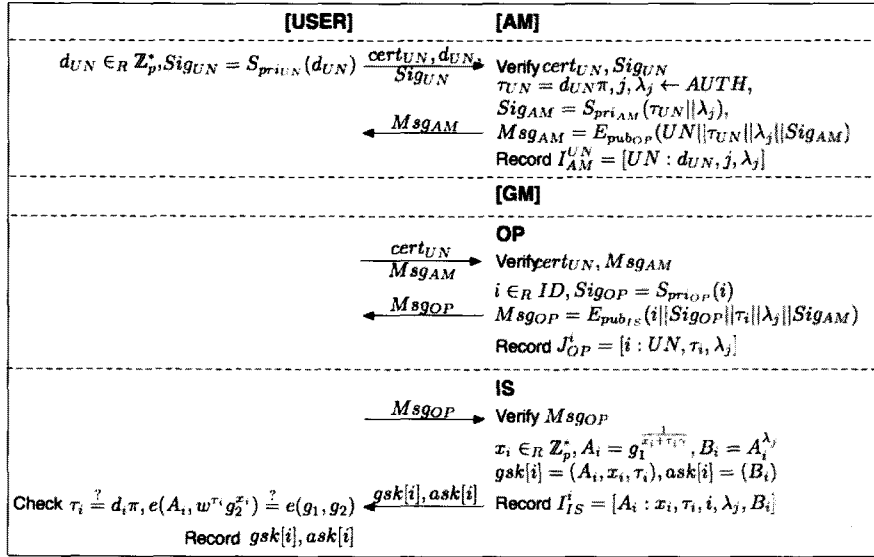 [USER] [AM]
d_{UN} ∈_R ℤ*_p, Sig_{UN} = S_{pri_{UN}}(d_{UN}) cert_{UN}, d_{UN}, Verify cert_{UN}, Sig_{UN}
Sig_{UN} τ_{UN} = d_{UN}π, j, λ_j ← AUTH,
Sig_{AM} = S_{pri_{AM}}(τ_{UN}||λ_j),
Msg_{AM} Msg_{AM} = E_{pub_{OP}}(UN||τ_{UN}||λ_j||Sig_{AM})
Record I^{UN}_{AM} = [UN : d_{UN}, j, λ_j]
[GM]
OP
cert_{UN} Verify cert_{UN}, Msg_{AM}
Msg_{AM}
i ∈_R ID, Sig_{OP} = S_{pri_{OP}}(i)
Msg_{OP} Msg_{OP} = E_{pub_{IS}}(i||Sig_{OP}||τ_i||λ_j||Sig_{AM})
Record J^i_{OP} = [i : UN, τ_i, λ_j]
IS
Msg_{OP} Verify Msg_{OP}
x_i ∈_R ℤ*_p, A_i = g_1^{1/(x_i+τ_iγ)}, B_i = A_i^{λ_j}
gsk[i] = (A_i, x_i, τ_i), ask[i] = (B_i)
Check τ_i ≟ d_iπ, e(A_i, w^{τ_i}g_2^{x_i}) ≟ e(g_1, g_2) gsk[i], ask[i] Record I^i_{IS} = [A_i : x_i, τ_i, i, λ_j, B_i]
Record gsk[i], ask[i]